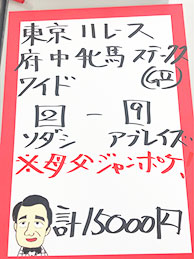 東京11レース
府中牝馬ステークス
(GII)
ワイド
2 - 9
ソダシ アブレイズ
※母父ジャンポケ、
計15000円